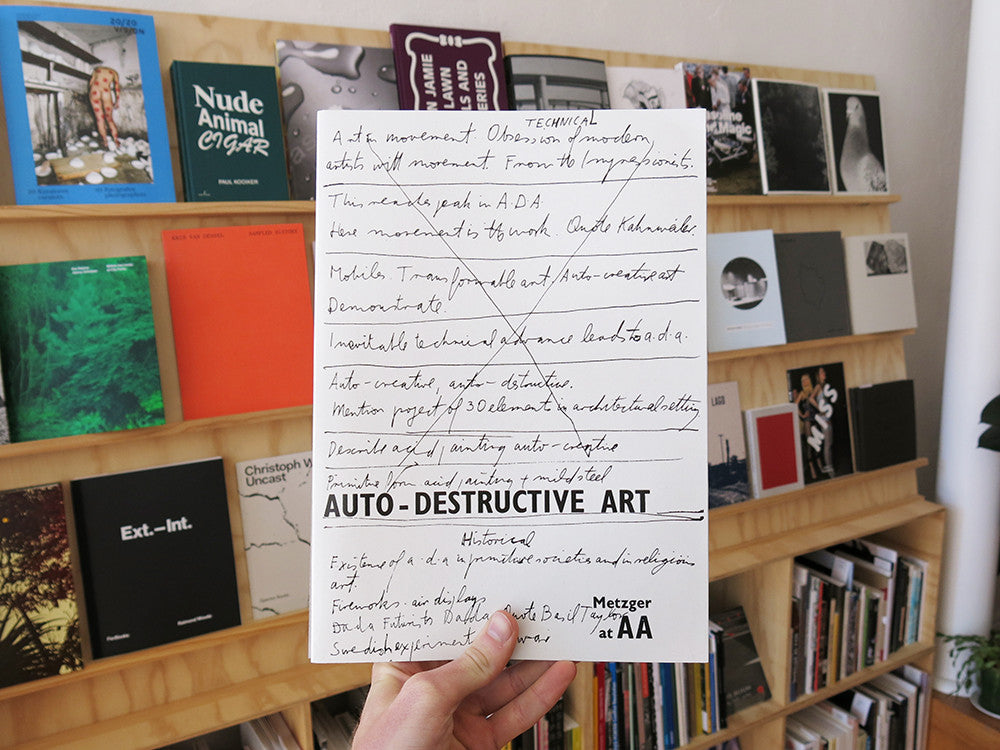 20/20
VISION
Nude
Animal
CIGAR
PAUL KOOIKER
N JAMIE
LAWN
LS AND
ERIES
TECHNICAL
Art in movement. Obsession of modern
artists with movement. From the Impressionists.
This reaches peak in A.D.A
Here movement is the work. Quote Kahnweiler.
Mobiles Transformable art. Auto-creative art
Demonstrate.
Inevitable technical advance leads to a.d.a.
Auto-creative, auto-destructive.
Mention project of 3D element in architectural setting
Describe acid painting auto-creative
Primitive form acid painting + mild steel
AUTO-DESTRUCTIVE ART
Historical
Existence of a-d-a in primitive societies and in religious
art.
Fireworks. air displays
Dada Futurists Dada Quote Basil Taylor
Swedish experiment war
Metzger
at AA
KRIS VAN DESSEL
SAMPLED HISTORY
Ext.–Int.
Christoph W
Uncast
LAGO
MISS